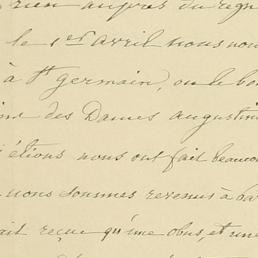 rien auprès du regn
le 1er avril nous nou
à St germain, ou le bo
des Dames augustin
étions nous ont fait beaucou
nous sommes revenus à ba
ait reçue qu'une obus, et une